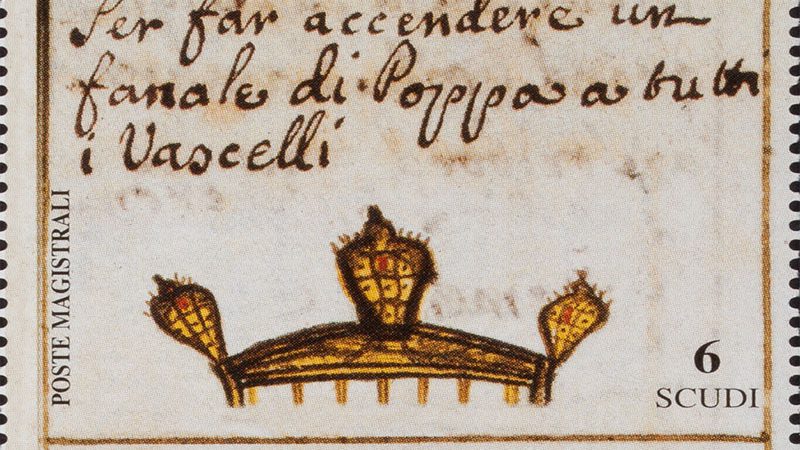 Per far accendere un
fanale di Poppa a tutti
i Vascelli
POSTE MAGISTRALI
6
SCUDI